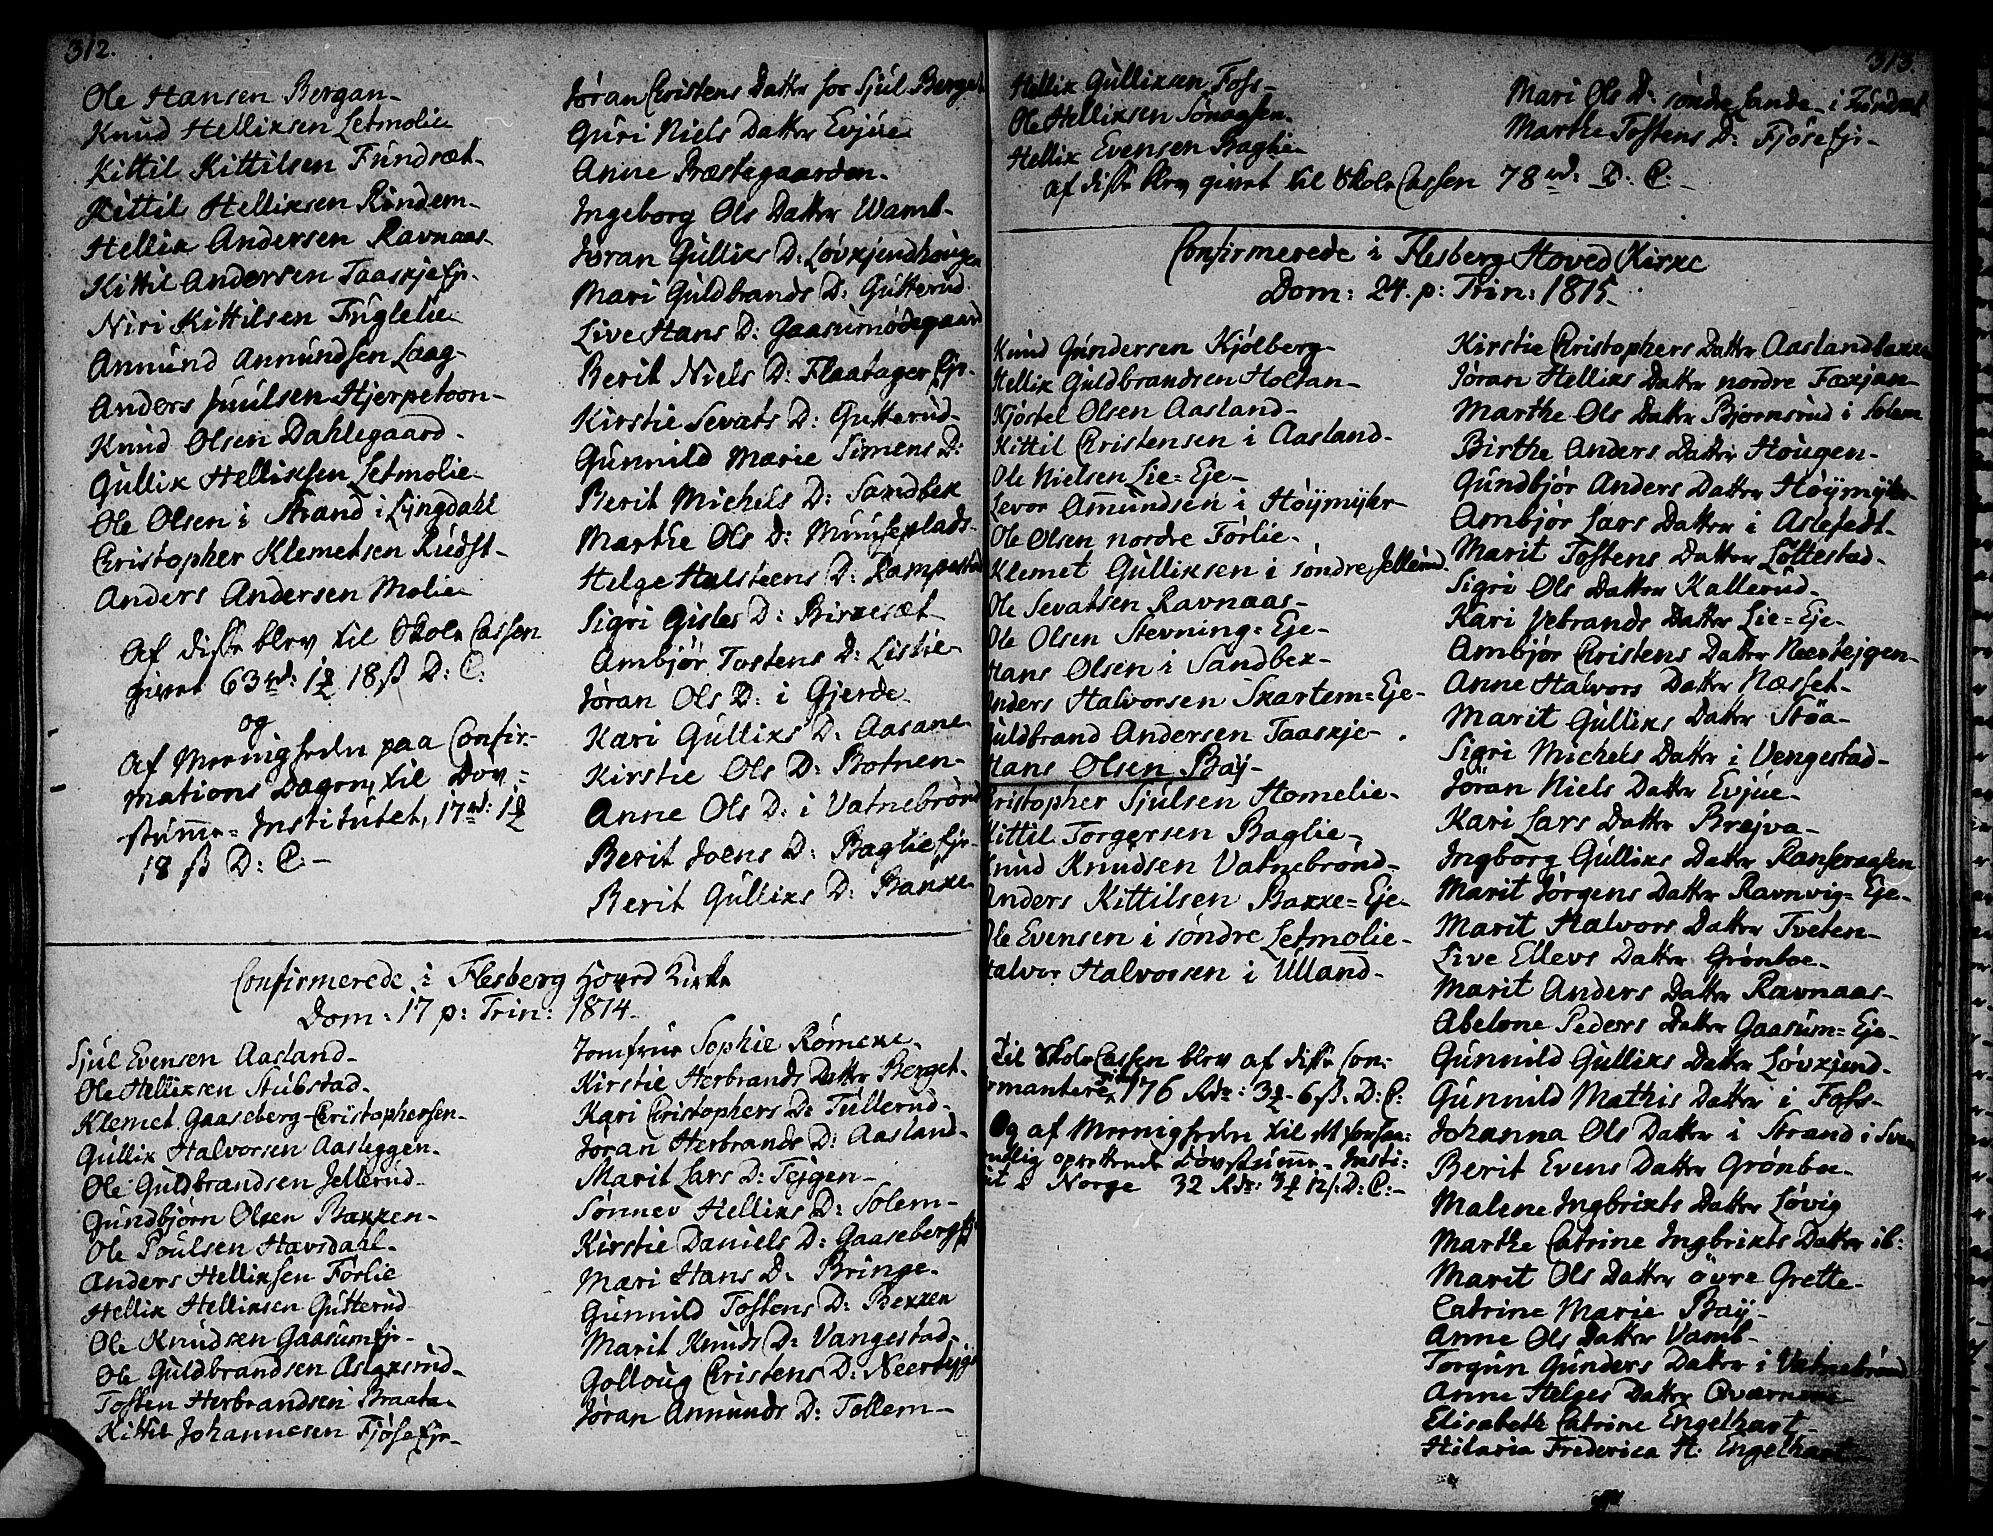 312.
Ole Hansen Bergan-
Knud Helliksen Letmolie
Kittil Kittilsen Fundsæt-
Kittil Helliksen Rindem-
Hellik Andersen Ravnaas-
Kittil Andersen Taaskje Ejr-
Niri Kittilsen Fuglelie
Anmund Anmundsen Laag-
Anders Juulsen Hjerpetoon-
Knud Olsen Dahlegaard-
Gullik Hellikssen Letmolie
Ole Olsen i Strand i Lyngdahl
Christopher Klemetsen Rudst-
Anders Andersen Molie
Af disse blev til Skole Cassen
givet 63 rd: 1 18 ß D: C:
og
Af Meenigheden paa Confir-
mations Dagen, til Døv=
stumme= Institutet, 17 rd: 1
18 ß D: C-
Jøran Christens Datter Sjul Berget
Guri Niels Datter Evjue
Anne Præstegaarden-
Ingeborg Ols Datter Wamb-
Jøran Gulliks D: Løvkjendhougen
Mari Guldbrands D: Gutterud
Live Hans D: Gaasumødegaard
Berit Niels D: Flaatager Ejr-
Kirstie Sevats D: Gutterud-
Gunnild Marie Simens D:
Berit Michels D: Sandbek
Marthe Ols D: Muuseplads-
Helge Halsteens D: Lampestad
Sigri Gisles D: Birkesæt
Ambjør Tostens D: Listie-
Jøran Ols D: i Gjerde
Kari Gulliks D: Aasane
Kirstie Ols D: Botnen-
Anne Ols D: i Vatnebrønd
Berit Joens D: Baglie Ejr-
Berit Gulliks D: Bakke
Confirmerede i Flesberg Hoved Kirke
Dom: 17 p: Trin: 1814-
Sjul Evensen Aasland-
Ole Helliksen Stubstad-
Klemet Gaaseberg-Christophersen-
Gullik Halvorsen Aasleggen-
Ole Guldbrandsen Jellerud-
Gundbjørn Olsen Bakken-
Ole Poulsen Havsdahl-
Anders Helliksen Førlie
Hellik Helliksen Gutterud
Ole Knudsen Gaasum Ejr-
Ole Guldbrandsen Aslaksrud-
Tosten Herbrandsen Braata-
Kittil Johannesen Fjøse Ejr-
Jomfrue Sophie Rømcke-
Kirstie Herbrands Datter Berget-
Kari Christophers D: Tullerud-
Jøran Herbrands D: Aasland-
Marit Lars D: Tejgen-
Sønnev Helliks D: Solem-
Kirstie Daniels D: Gaaseberg
Mari Hans D: Bringe-
Gunnild Tostens D: Bekken
Marit Knuds D: Vangestad-
Golloug Christens D: Neertejgen
Jøran Anmunds D: Tollem-
313.
Hellik Gulliksen Foss-
Ole Helliksen Sønagsen
Hellik Evensen Baglie
af disse blev givet til Skole Cassen 78 rd: D: C-
Mari Ols D: søndre Lande i Fundset
Marthe Tostens D: Fjøse Ejr-
Confirmerede i Flesberg Hoved Kirke
Dom: 24. p: Trin: 1815-
Knud Gundersen Kjølberg-
Hellik Guldbrandsen Holtan-
Kjøstel Olsen Aasland-
Kittil Christensen i Aasland-
Ole Nielsen Lie=Eje-
Levor Amundsen i Høÿmÿhr
Ole Olsen nordre Førlie-
Klemet Gulliksen i søndre Jellerud.
Ole Sevatsen Ravnaas-
Ole Olsen Stevning=Eje-
Hans Olsen i Sandbek-
Anders Halvorsen Skartem=Eje-
Guldbrand Andersen Taaskje-
Hans Olsen Baÿ-
Christopher Sjulsen Homelie-
Kittil Torgersen Baglie-
Knud Knudsen Vatnebrønd-
Anders Kittilsen Bakke=Eje-
Ole Evensen i søndre Letmolie-
Halvor Halvorsen i Ulland-
Til Skole Cassen blev af disse Con-
firmantere 176 Rdr: 3 6 ß. D: C:
Og af Meenigheden til
oprettende Døvstumme- Insti:
tut i Norge 32 Rdr: 3 12 ß: D: C:-
Kirstie Christophers Datter Aaslandbakke
Jøran Helliks Datter nordre Foxjan-
Marthe Ols Datter Bjørnsrud i Solem
Birthe Anders Datter Hougen-
Gundbjør Anders Datter Høÿmÿhr-
Ambjør Lars Datter i Aslefedt-
Marit Tostens Datter Løftestad-
Sigri Ols Datter Kallerud-
Kari Vebrands Datter Lie=Eje-
Ambjør Christens Datter Neertejgen-
Anne Halvors Datter Næsset-
Marit Gulliks Datter Støa-
Sigri Michels Datter i Vengestad-
Jøran Niels Datter Evjue-
Kari Lars Datter Brejva-
Ingborg Gulliks Datter
Marit Jørgens Datter Ravnvig=Eje-
Marit Halvors Datter Tveten-
Live Ellevs Datter Grønboe-
Marit Anders Datter Ravnaas-
Abelone Peders Datter Gaasum=Eje-
Gunnild Gulliks Datter Løvkjend-
Gunnild Mathis Datter i Foss-
Johanna Ols Datter i Strand i
Berit Evens Datter Grønboe-
Malene Ingbrikts Datter Løvig
Marthe Catrine Ingbrikts Datter ib:
Marit Ols Datter øvre Grette-
Catrine Marie Baÿ-
Anne Ols Datter Vamb-
Torgun Gunders Datter i Vatnebrønd
Anne Helges Datter Qværnene
Elisabeth Catrine Engelhart-
Hilaria Frederica H: Engelhart